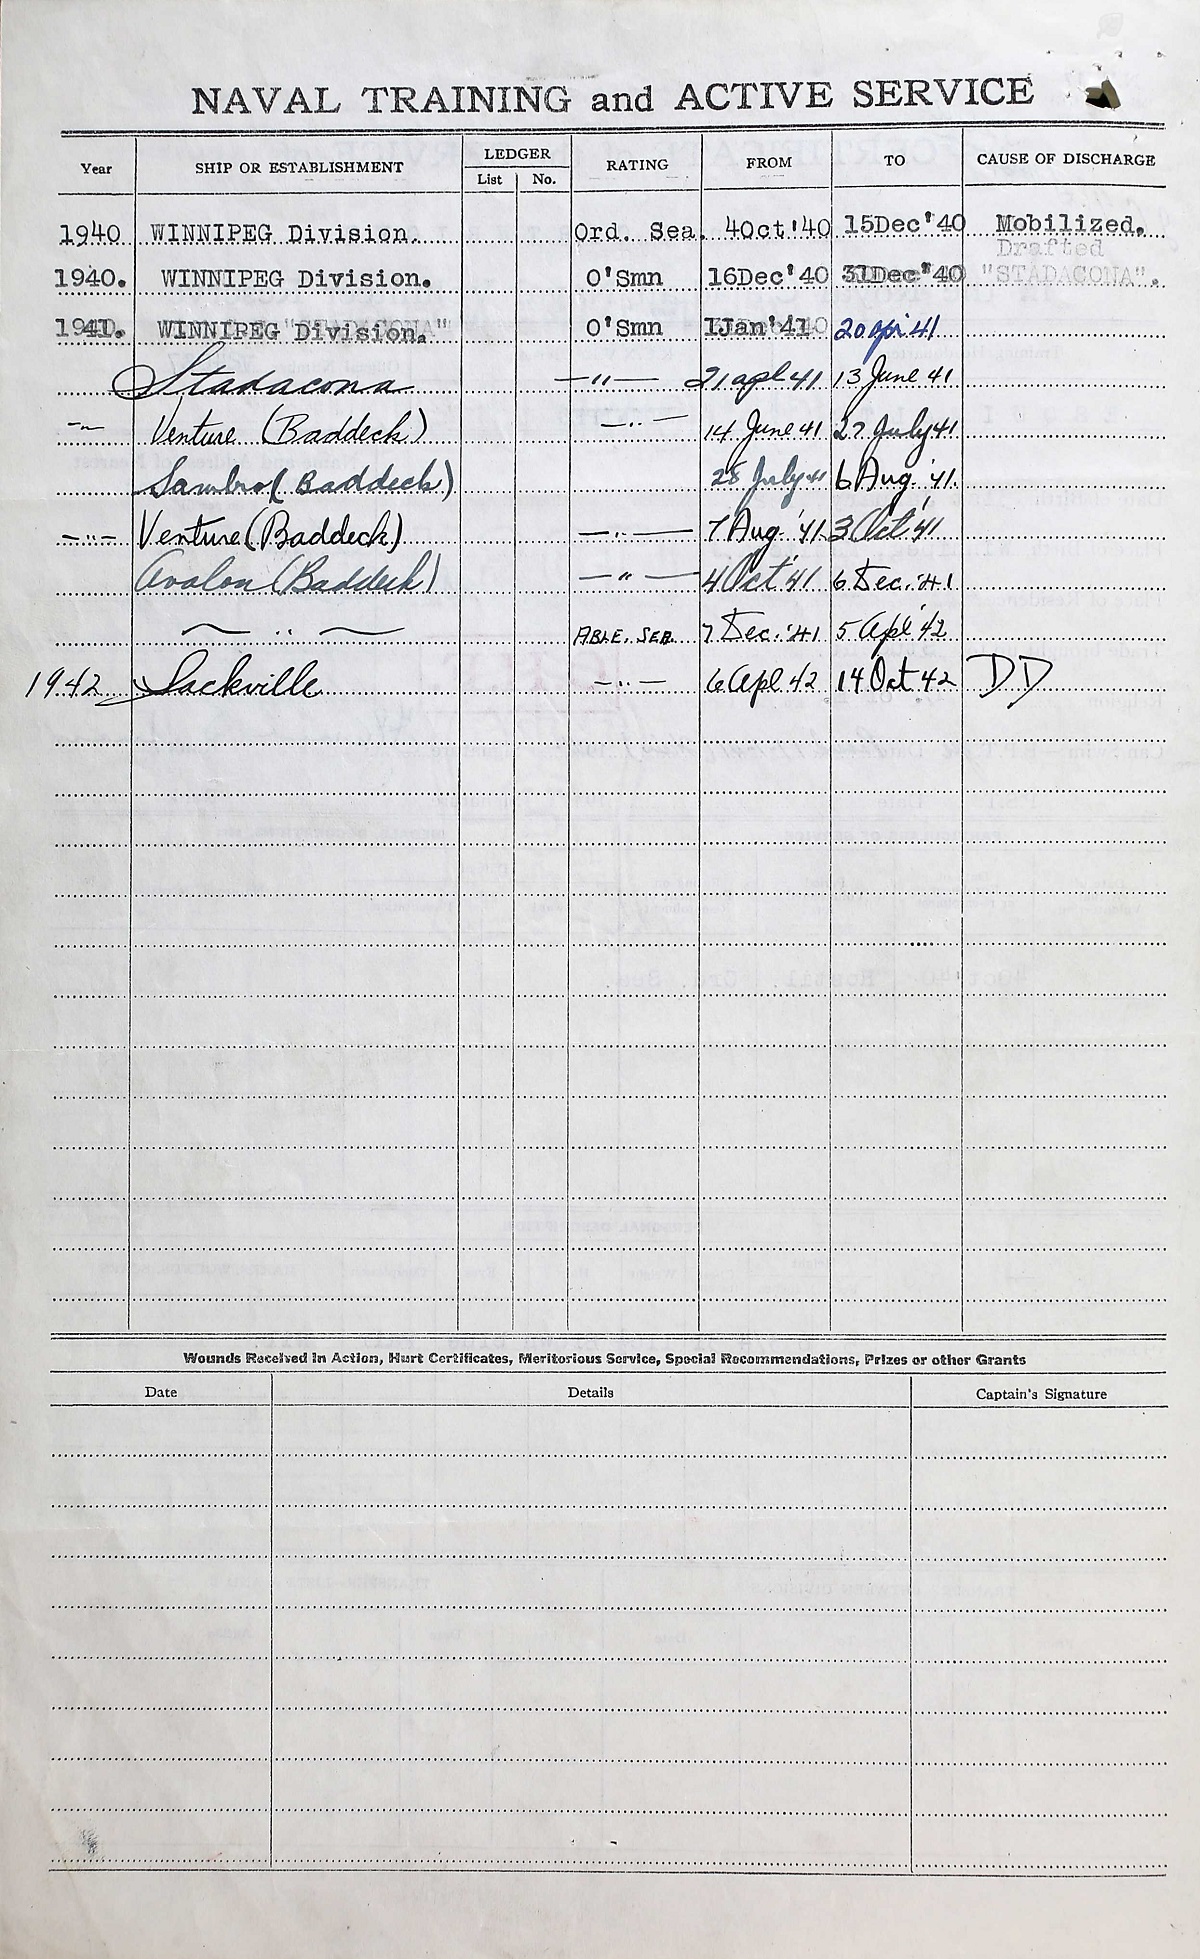 NAVAL TRAINING and ACTIVE SERVICE
Year SHIP OR ESTABLISHMENT LEDGER List No. RATING FROM TO CAUSE OF DISCHARGE
1940 WINNIPEG Division. Ord. Sea. 4Oct'40 15Dec'40 Mobilized.
Drafted
1940. WINNIPEG Division. O'Smn 16Dec'40 31Dec'40 "STADACONA".
1941. WINNIPEG Division. O'Smn 1Jan'41 20 Apr 41
Stadacona —"— 21 Apl 41 13 June 41
-"- Venture (Baddeck) —"— 14 June 41 27 July 41
Sambro (Baddeck) 28 July 41 6 Aug '41.
—"— Venture (Baddeck) —"— 7 Aug '41 3 Oct '41
Avalon (Baddeck) —"— 4 Oct '41 6 Dec. '41
— " — ABLE. SEA. 7 Dec. '41 5 Apl '42
1942 Sackville —"— 6 Apl 42 14 Oct 42 DD
Wounds Received in Action, Hurt Certificates, Meritorious Service, Special Recommendations, Prizes or other Grants
Date Details Captain's Signature